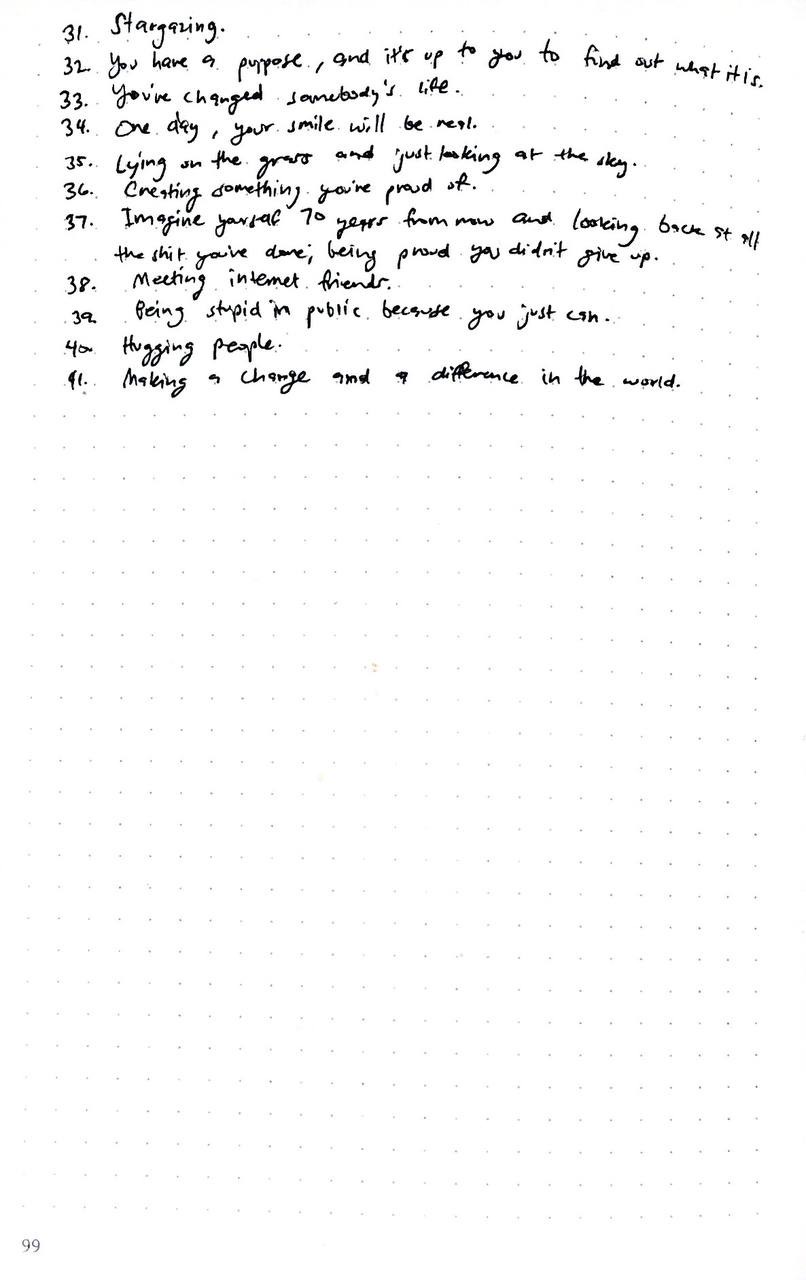 31. Stargazing.
32. You have a purpose, and it's up to you to find out what it is.
33. You've changed somebody's life.
34. One day, your smile will be real.
35. Lying on the grass and just looking at the sky.
36. Creating something you're proud of.
37. Imagine yourself 70 years from now and looking back at all
the shit you've done; being proud you didn't give up.
38. Meeting internet friends.
39. Being stupid in public because you just can.
40. Hugging people.
41. Making a change and a difference in the world.
99